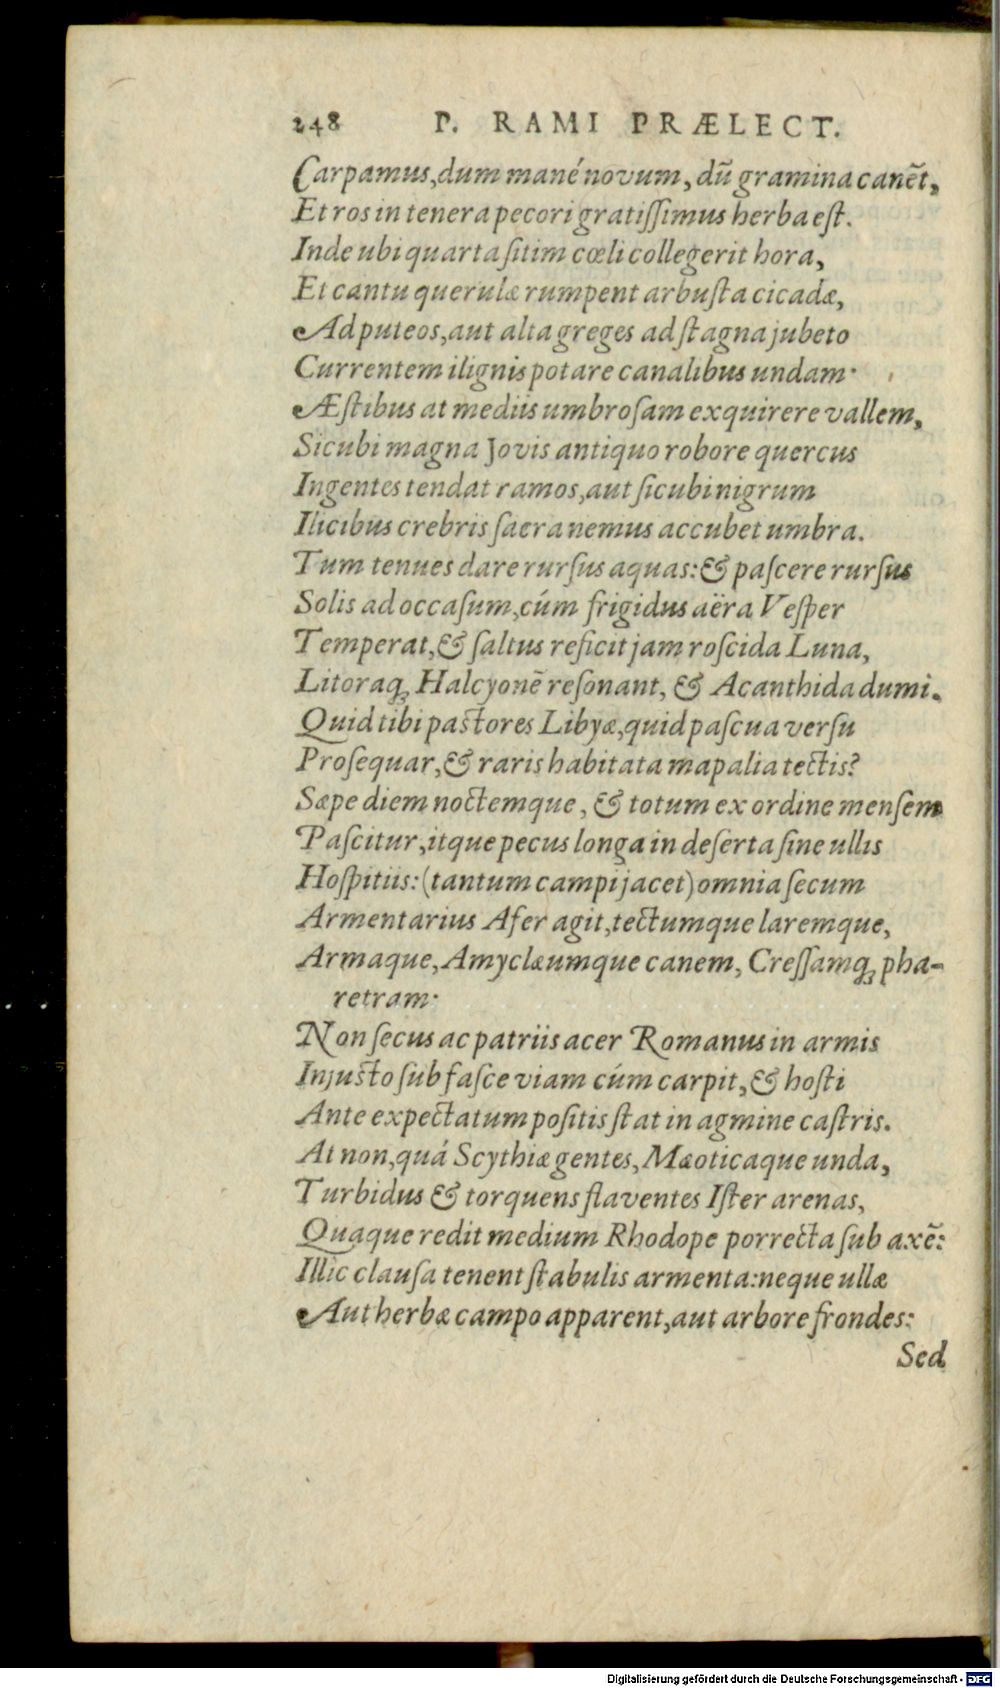 248 P. RAMI PRÆLECT.
Carpamus, dum mané novum, dũ gramina canẽt,
Et ros in tenera pecori gratiſſimus herba eſt.
Inde ubi quarta ſitim cœli collegerit hora,
Et cantu querulæ rumpent arbuſta cicadæ,
Ad puteos, aut alta greges ad ſtagna jubeto
Currentem ilignis potare canalibus undam.
Æſtibus at mediis umbroſam exquirere vallem,
Sicubi magna Jovis antiquo robore quercus
Ingentes tendat ramos, aut ſicubi nigrum
Ilicibus crebris ſacra nemus accubet umbra.
Tum tenues dare rurſus aquas: & paſcere rurſus
Solis ad occaſum, cúm frigidus aëra Veſper
Temperat, & ſaltus reficit jam roſcida Luna,
Litoraq; Halcyonẽ reſonant, & Acanthida dumi.
Quid tibi paſtores Libyæ, quid paſcua verſu
Proſequar, & raris habitata mapalia tectis?
Sæpe diem noctemque, & totum ex ordine menſem
Paſcitur, itque pecus longa in deſerta ſine ullis
Hoſpitiis: (tantum campi jacet) omnia ſecum
Armentarius Afer agit, tectumque laremque,
Armaque, Amyclæumque canem, Creſſamq; pha-
retram:
Non ſecus ac patriis acer Romanus in armis
Injuſto ſub faſce viam cúm carpit, & hoſti
Ante expectatum poſitis ſtat in agmine caſtris.
At non, quá Scythiæ gentes, Mæoticaque unda,
Turbidus & torquens flaventes Iſter arenas,
Quaque redit medium Rhodope porrecta ſub axẽ:
Illic clauſa tenent ſtabulis armenta: neque ullæ
Aut herbæ campo apparent, aut arbore frondes:
Sed
Digitalisierung gefördert durch die Deutsche Forschungsgemeinschaft - DFG